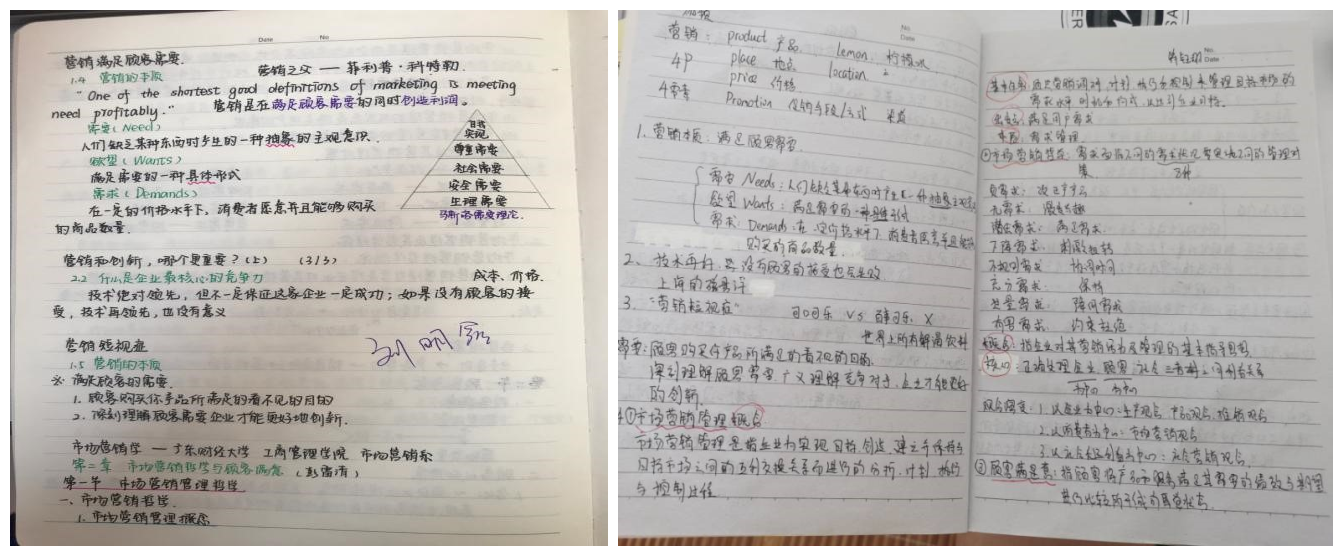 Date No
营销满足顾客需要.
1.4 营销的本质
营销之父 — 菲利普·科特勒.
"One of the shortest good definitions of marketing is meeting
need profitably." 营销是在满足顾客需要的同时创造利润。
需要(Need)
人们缺乏某种东西时产生的一种抽象的主观意识.
欲望(Wants)
满足需要的一种具体形式
需求(Demands)
在一定的价格水平下，消费者愿意并且能够购买
的商品数量.
自我
实现
尊重需要
社会需要
安全需要
生理需要
马斯洛需要理论.
营销和创新，哪个更重要？(上) (3/3)
2.2 什么是企业最核心的竞争力
成本、价格.
技术绝对领先，但不一定保证这家企业一定成功；如果没有顾客的接
受，技术再领先，也没有意义
营销短视症
1.5 营销的本质
※ 满足顾客的需要.
1. 顾客购买你产品所满足的看不见的目的
2. 深刻理解顾客需要企业才能更好地创新.
市场营销学 — 广东财经大学 工商管理学院 市场营销系
第二章 市场营销哲学与顾客满意
第一节 市场营销管理哲学
一、市场营销哲学.
1. 市场营销管理概念
No.
Date
营销： product 产品 lemon: 柠檬
4P place 地点 location
4需要 price 价格
Promotion 渠道
1. 营销本质：满足顾客需要.
需要 Needs：人们缺乏某种东西时产生的一种抽象主观意识
欲望 Wants：满足需要的一种具体形式
需求：Demands，在一定价格水平下，消费者愿意并且能够
购买的商品数量.
2、技术再好，若没有顾客的接受也无效
3. "营销短视症" 可口可乐 VS 百事可乐 X
世界上所有解渴饮料
需要：顾客购买你产品所满足的看不见的目的.
深刻理解顾客需要，广义理解竞争对手，企业才能更好
的创新.
4.①市场营销管理概念
市场营销管理是指企业为实现目标，创造、建立并保持与
目标市场之间的互利交换关系而进行的分析、计划、执行
与控制过程
No.
Date
本质：需求管理.
负需求：
无需求：
潜在需求：
下降需求：
不规则需求 协调时间
充分需求： 保持
过量需求： 降低需求
有害需求：
概念：指企业对其营销活动及管理的基本指导思想.
核心：正确处理企业、顾客、社会三者之间利益关系
1. 以企业为中心：生产观念、产品观念、推销观念
2. 以消费者为中心：市场营销观念
3. 以社会长远利益为中心：社会营销观念.
②顾客满意：指顾客将产品和服务满足其需要的绩效与期望
进行比较所形成的感觉状态.